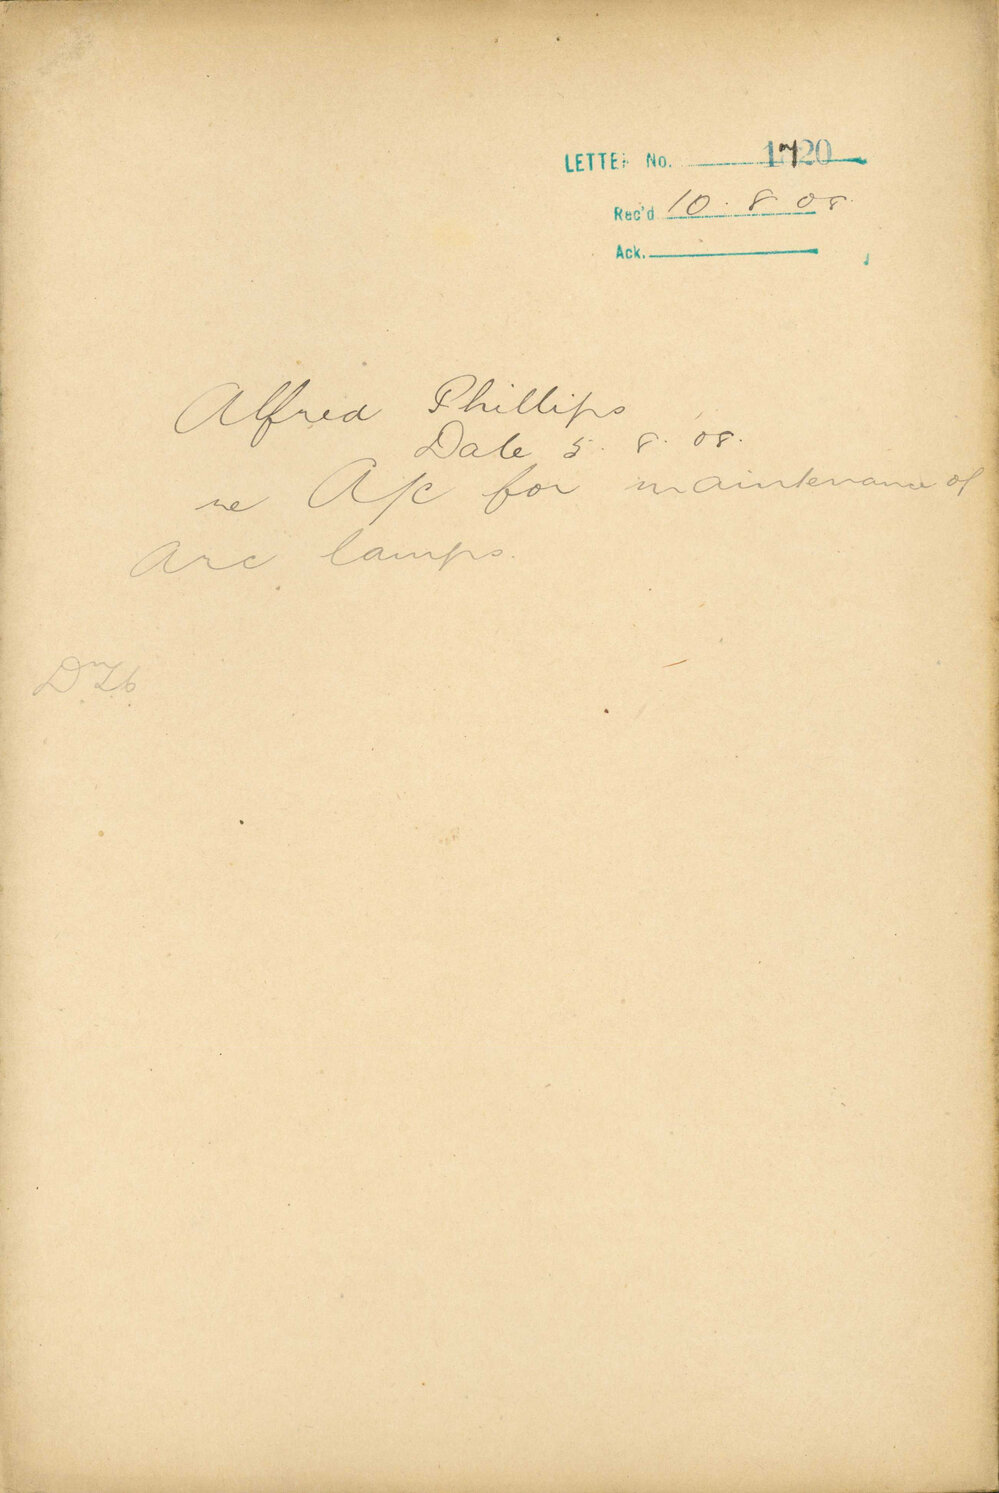 LETTER No. 1720
Rec'd 10. 8 08
Ack.
Alfred Phillips
Date 5. 8. 08.
re A/c for maintenance of
arc lamps.